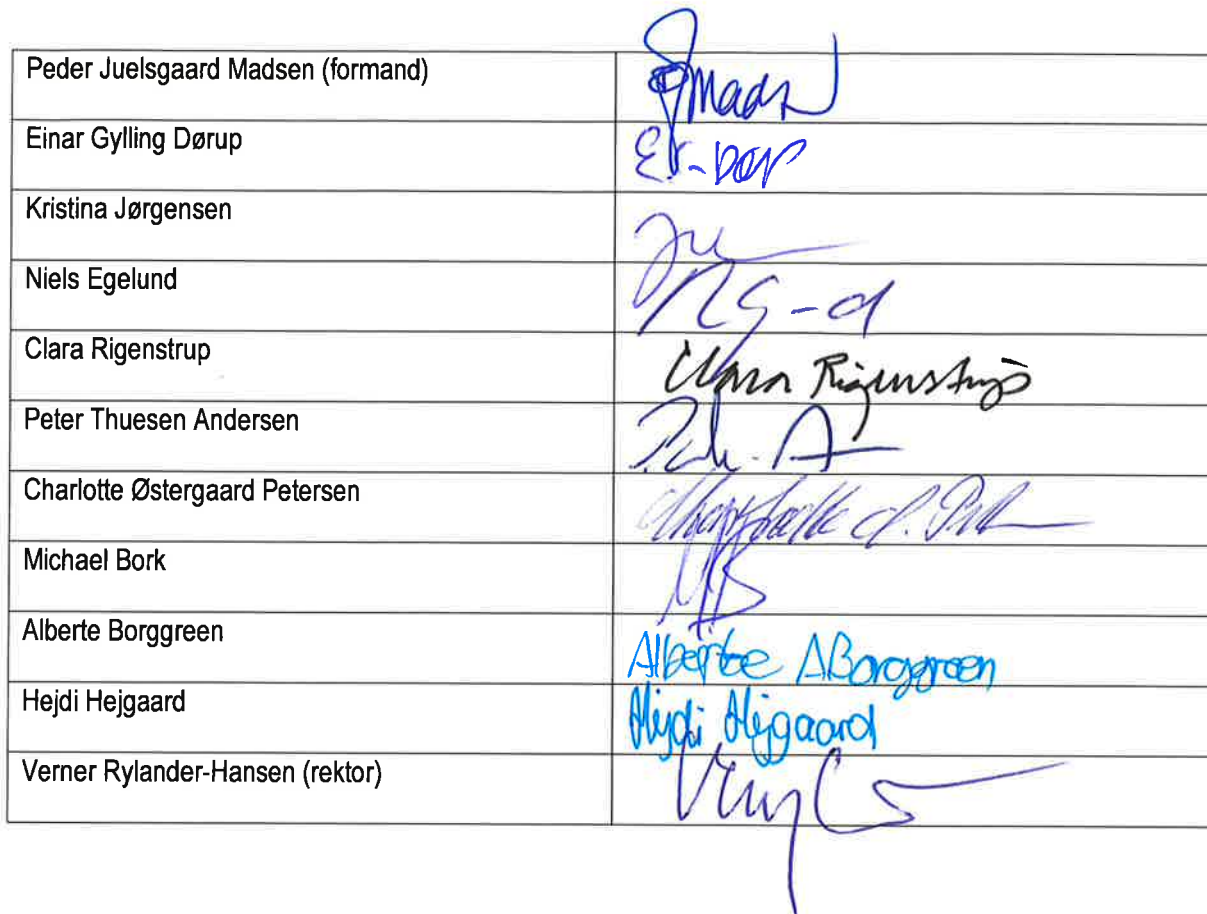 Peder Juelsgaard Madsen (formand)
Einar Gylling Dørup
Kristina Jørgensen
Niels Egelund
Clara Rigenstrup
Clara Rigenstrup
Peter Thuesen Andersen
Charlotte Østergaard Petersen
Michael Bork
MB
Alberte Borggreen
Alberte ABorggreen
Hejdi Hejgaard
Hejdi Hejgaard
Verner Rylander-Hansen (rektor)